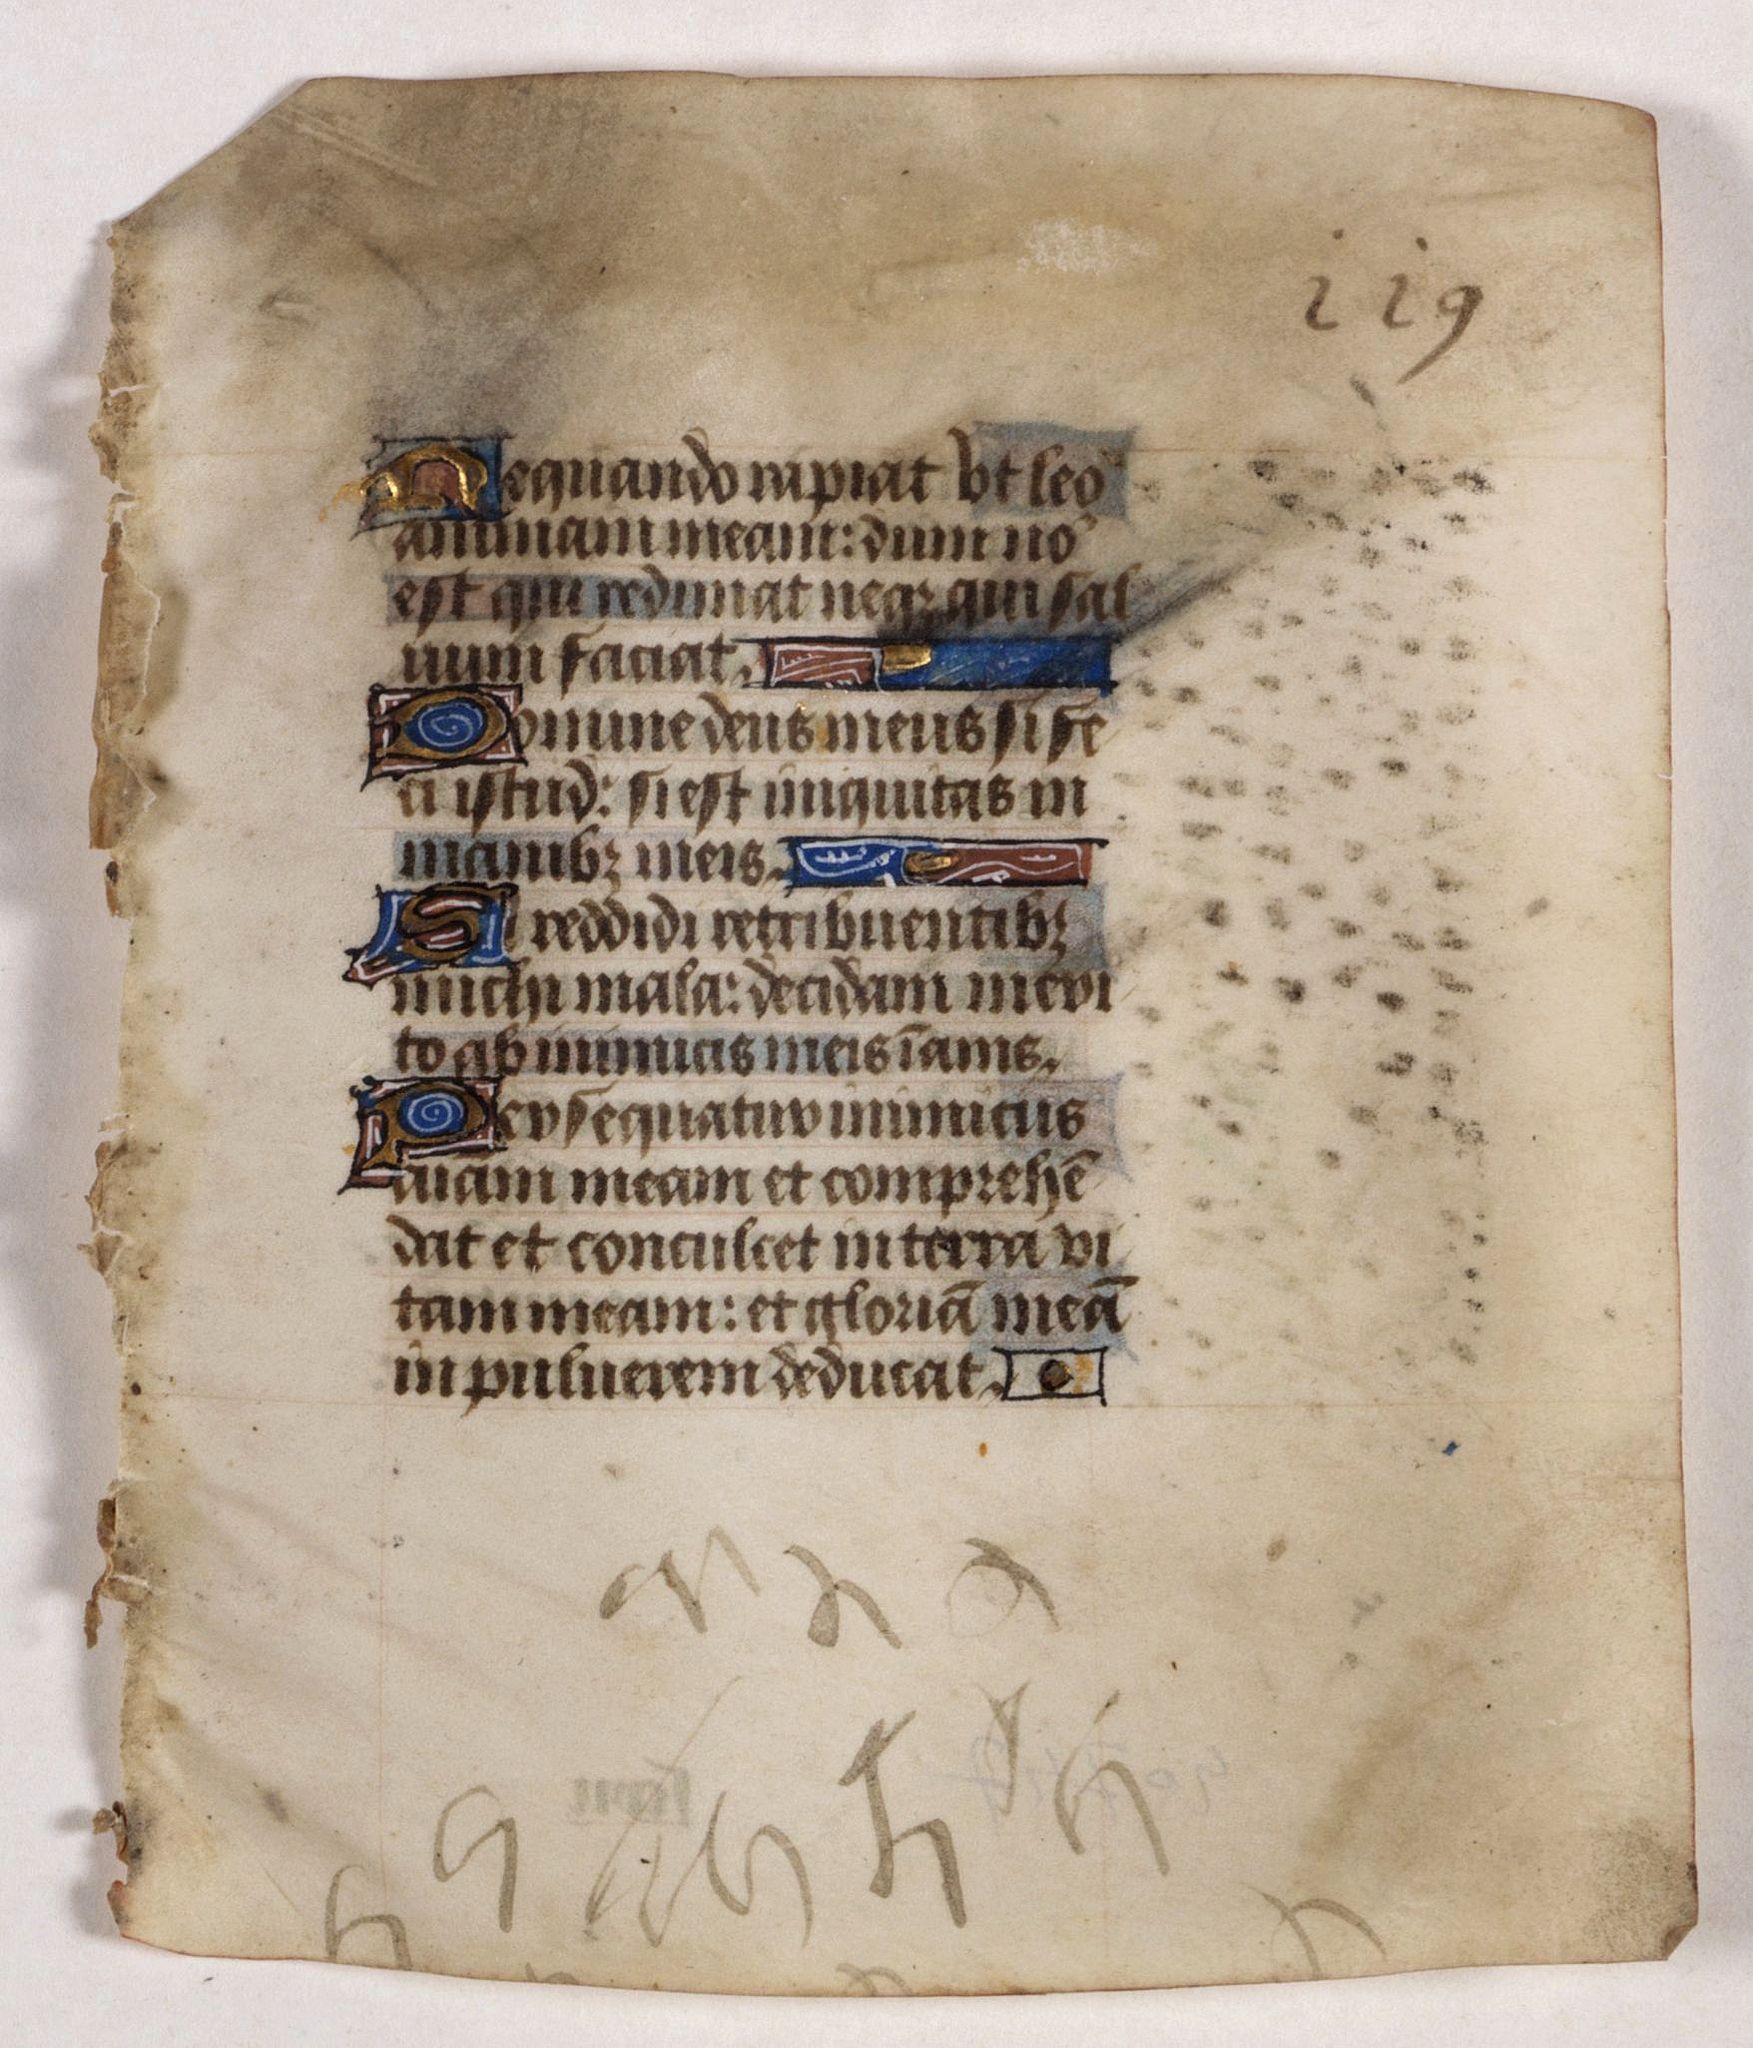 iig
Nequando rapiat ut leo
animam meam: dum nō
est qui redimat neqꝫ qui sal
uum faciat.
Domine deus meus si fe
ci istud: si est iniquitas in
manibꝫ meis.
Si reddidi retribuentibꝫ
michi mala: decidam meri
to ab inimicis meis īanis.
Persequatur inimicus
aīam meam et comprehē
dat et conculcet in terra vi
tam meam: et gloriā meā
in puluerem deducat.